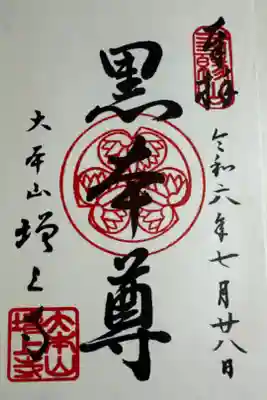 奉拝
令和六年七月廿八日
黒本尊
大本山増上寺
大本山
増上寺